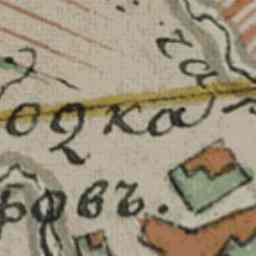 га
одка
ровъ.